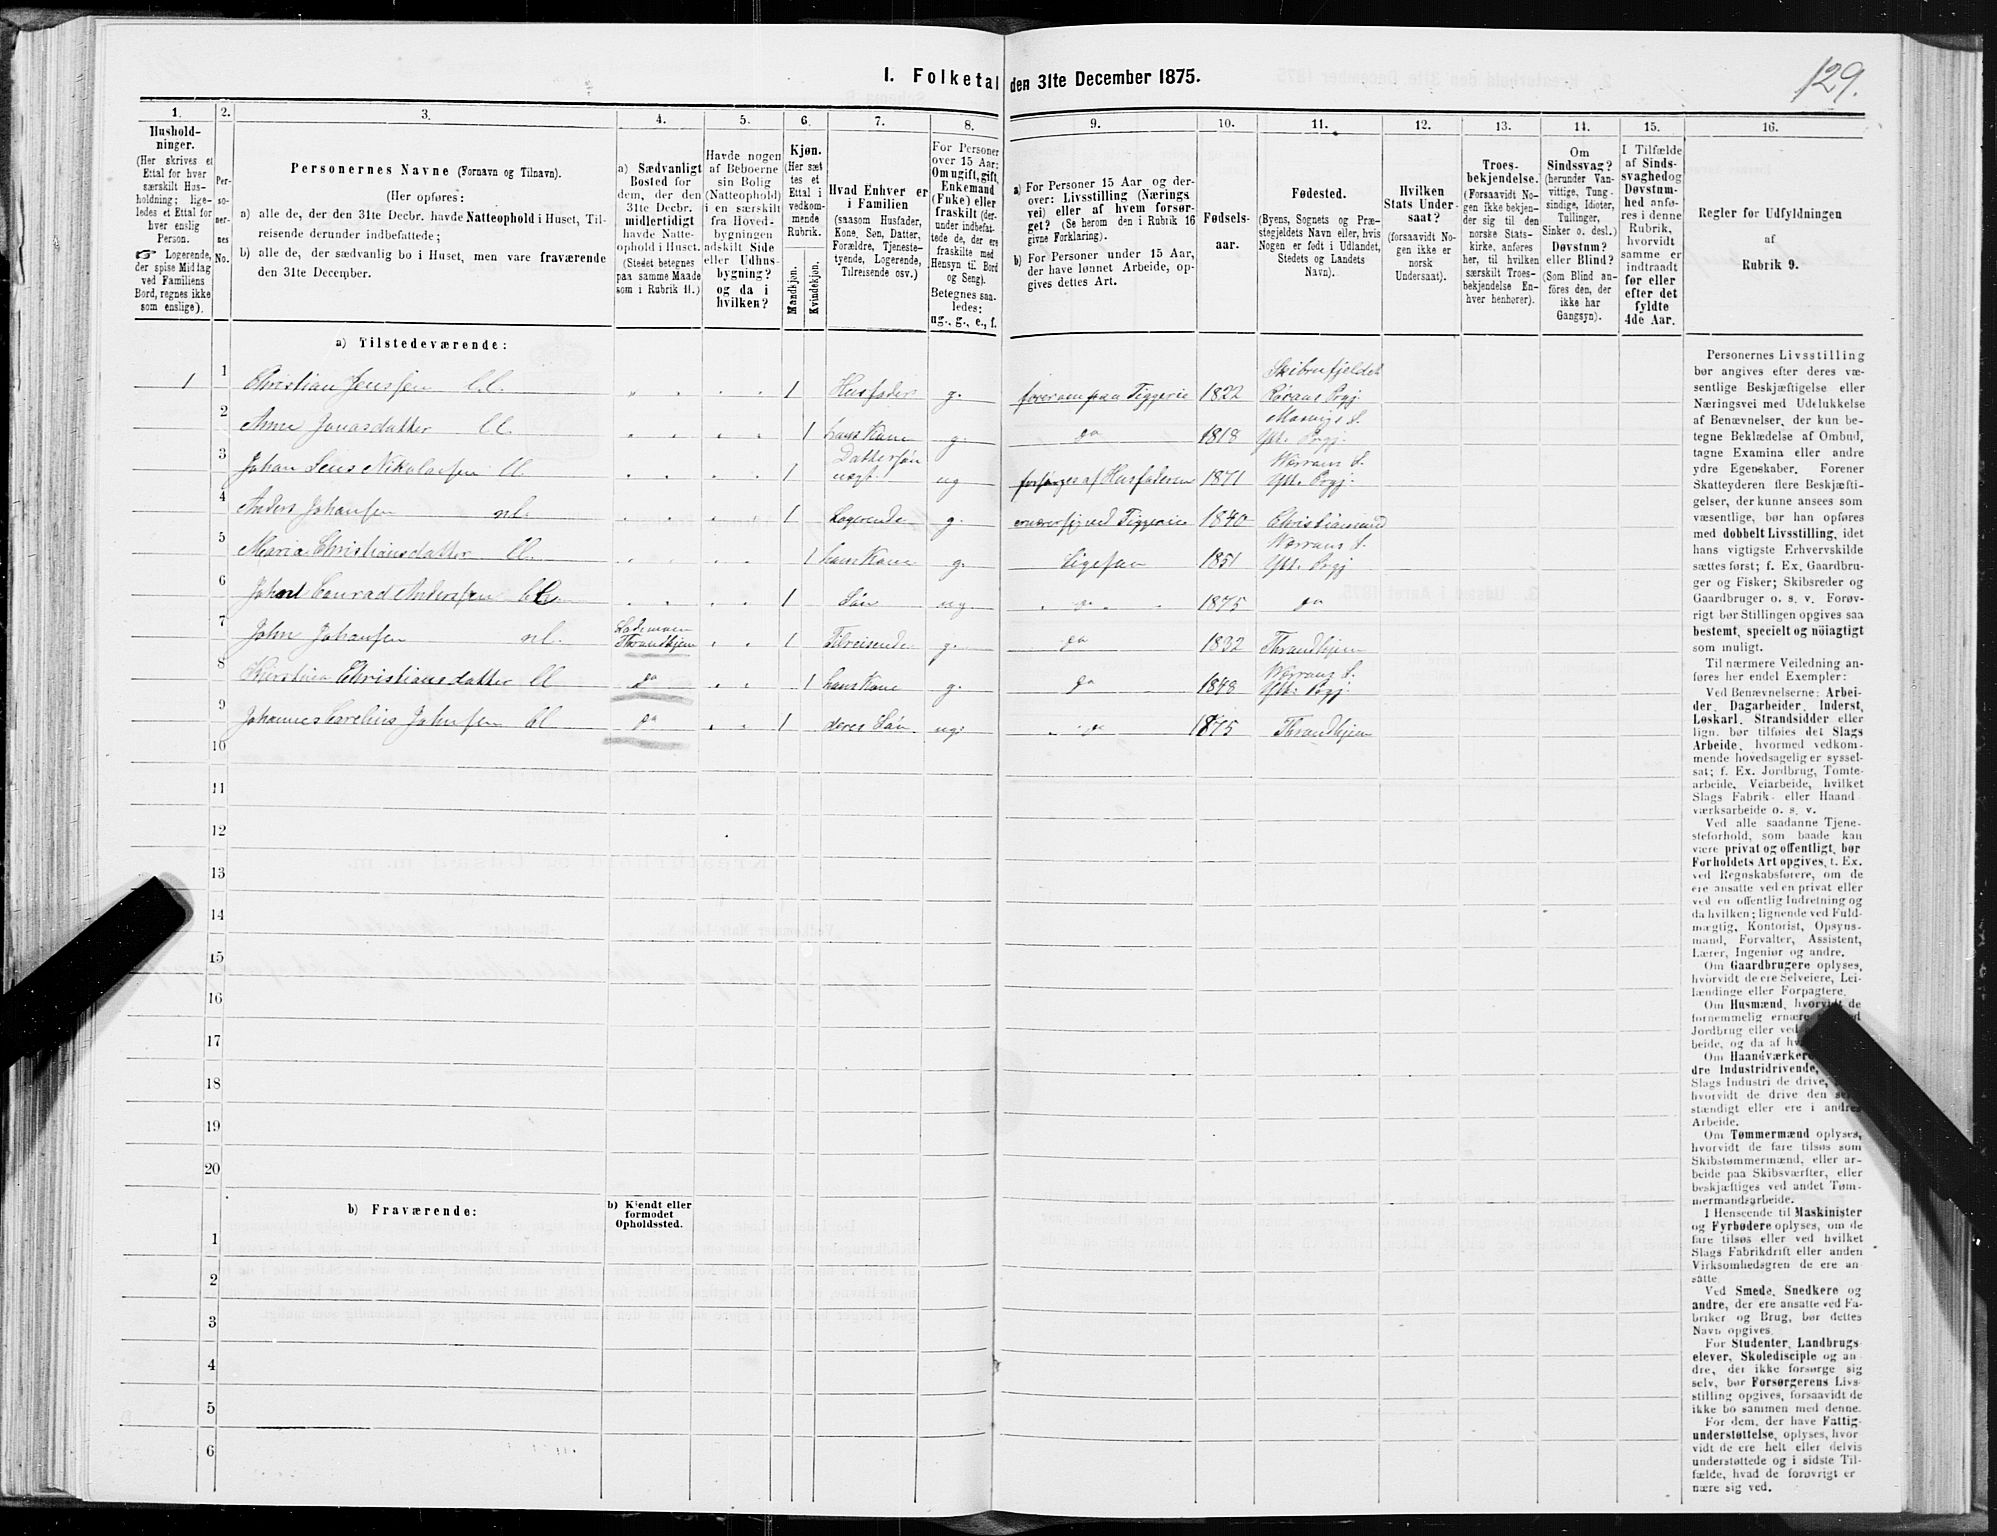 129.
1. Folketal den 31te December 1875.
1. 2. 3. 4. 5. 6. 7. 8. 9. 10. 11. 12. 13. 14. 15. 16.
Hushold-
ninger.
(Her skrives et
Ettal for hver
særskilt Hus-
holdning; lige-
ledes et Ettal for
hver enslig
Person.
☞ Logerende,
der spise Middag
ved Familiens
Bord, regnes ikke
som enslige).
Per-
so-
ner-
nes
No.
Personernes Navne (Fornavn og Tilnavn).
(Her opføres:
a) alle de, der den 31te Decbr. havde Natteophold i Huset, Til-
reisende derunder indbefattede;
b) alle de, der sædvanlig bo i Huset, men vare fraværende
den 31te December.
a) Sædvanligt
Bosted for
dem, der den
31te Decbr.
midlertidigt
havde Natte-
ophold i Huset.
(Stedet betegnes
paa samme Maade
som i Rubrik 11.)
Havde nogen
af Beboerne
sin Bolig
(Natteophold)
i en særskilt
fra Hoved-
bygningen
adskilt Side
eller Udhus-
bygning?
og da i
hvilken?
Kjøn.
(Her sæt
tes et
Ettal i
vedkom-
mende
Rubrik.
Mandkjøn.
Kvindekjøn.
Hvad Enhver er
i Familien
(saasom Husfader,
Kone, Søn, Datter,
Forældre, Tjeneste-
tyende, Logerende,
Tilreisende osv.)
For Personer
over 15 Aar:
Om ugift, gift,
Enkemand
(Enke) eller
fraskilt (der-
under indbefat-
tede de, der ere
fraskilte med
Hensyn til Bord
og Seng).
Betegnes saa-
ledes:
ug., g., e., f.
a) For Personer 15 Aar og der-
over: Livsstilling (Nærings
vei) eller af hvem forsør-
get? (Se herom den i Rubrik 16
givne Forklaring).
b) For Personer under 15 Aar,
der have lønnet Arbeide, op-
gives dettes Art.
Fødsels-
aar.
Fødested.
(Byens, Sognets og Præ-
stegjeldets Navn eller, hvis
Nogen er født i Udlandet,
Stedets og Landets
Navn).
Hvilken
Stats Under-
saat?
(forsaavidt No-
gen ikke er
norsk
Undersaat).
Troes-
bekjendelse.
(Forsaavidt No-
gen ikke bekjen-
der sig til den
norske Stats-
kirke, anføres
her, til hvilken
særskilt Troes-
bekjendelse En-
hver henhører).
Om
Sindssvag?
(herunder Van-
vittige, Tung-
sindige, Idioter,
Tullinger,
Sinker o. desl.)
Døvstum?
eller Blind?
(Som Blind an-
føres den, der
ikke har
Gangsyn).
I Tilfælde
af Sinds-
svaghed og
Døvstum-
hed anfø-
res i denne
Rubrik,
hvorvidt
samme er
indtraadt
før eller
efter det
fyldte
4de Aar.
Regler for Udfyldningen
af
Rubrik 9.
a) Tilstedeværende:
1 1 Christian Jenssen 1 Husfader g. Tiggerie 1822 Røraas Prgj.
2 Anne Jonasdatter 1 hans Kone g. do 1818 Prgj.
3 Johan Nikolaisen 1 Dattersøn ug forsørges af Husfaderen 1871 Prgj.
4 Anders Johansen nl. 1 Logerende g. Tiggerie 1840 Christianssund
5 Maria Christiansdatter 1 hans Kone g. Ligesaa 1851 Prgj
6 Conrad Anderssen 1 Søn ug. do 1875 do
7 John Johansen nl. Throndhjem 1 Tilreisende g. do 1832 Throndhjem
8 Christiansdatter do 1 hans Kone g. do 1848 Prgj.
9 Johannes Cornelius Johnsen do 1 deres Søn ug: do 1875 Throndhjem
10
11
12
13
14
15
16
18
19
20
b) Fraværende:
b) Kjendt eller
formodet
Opholdssted.
1
2
3
4
5
6
Personernes Livsstilling
bør angives efter deres væ-
sentlige Beskjæftigelse eller
Næringsvei med Udelukkelse
af Benævnelser, der kun be-
tegne Beklædelse af Ombud,
tagne Examina eller andre
ydre Egenskaber. Forener
Skatteyderen flere Beskjæfti-
gelser, der kunne ansees som
væsentlige, bør han opføres
med dobbelt Livsstilling, idet
hans vigtigste Erhvervskilde
sættes først; f. Ex. Gaardbru-
ger og Fisker; Skibsreder og
Gaardbruger o. s. v. Forøv-
rigt bør Stillingen opgives saa
bestemt, specielt og nöiagtigt
som muligt.
Til nærmere Veiledning an-
føres her endel Exempler:
Ved Benævnelserne: Arbei-
der, Dagarbeider, Inderst,
Løskarl, Strandsidder eller
lign. bør tilføies det Slags
Arbeide, hvormed vedkom-
mende hovedsagelig er syssel-
sat; f. Ex. Jordbrug, Tomte-
arbeide, Veiarbeide, hvilket
Slags Fabrik- eller Haand
værksarbeide o. s. v.
Ved alle saadanne Tjene-
steforhold, som baade kan
være privat og offentligt, bør
Forholdets Art opgives, t. Ex.
ved Regnskabsførere, om de
ere ansatte ved en privat eller
ved en offentlig Indretning og
da hvilken; lignende ved Fuld-
mægtig, Kontorist, Opsyns-
mand, Forvalter, Assistent,
Lærer, Ingeniør og andre.
Om Gaardbrugere oplyses,
hvorvidt de ere Selveiere, Lei-
lændinge eller Forpagtere.
Om Husmænd, hvorvidt de
fornemmelig ernære
Jordbrug eller ved
beide, og da af
Om Haandværkere
dre Industridrivende,
Slags Industri de drive,
hvorvidt de drive den
stændigt eller ere i andres
Arbeide.
Om Tømmermænd oplyses,
hvorvidt de fare tilsøs som
Skibstømmermænd, eller ar-
beide paa Skibsværfter, eller
beskjæftiges ved andet Tøm-
mermandsarbeide.
I Henseende til Maskinister
og Fyrbødere oplyses, om de
fare tilsøs eller ved hvilket
Slags Fabrikdrift eller anden
Virksomhedsgren de ere an-
satte
Ved Smede, Snedkere og
andre, der ere ansatte ved Fa-
briker og Brug, bør dettes
Navn opgives.
For Studenter, Landbrugs-
elever, Skoledisciple og an-
dre, der ikke forsørge sig
selv, bør Forsørgerens Livs-
stilling opgives, forsaavidt de
ikke bo sammen med denne.
For dem, der have Fattig-
understøttelse, oplyses, hvor
vidt de ere helt eller delvis
understøttede og i sidste Til-
fælde, hvad de forøvrigt er
nære sig ved.